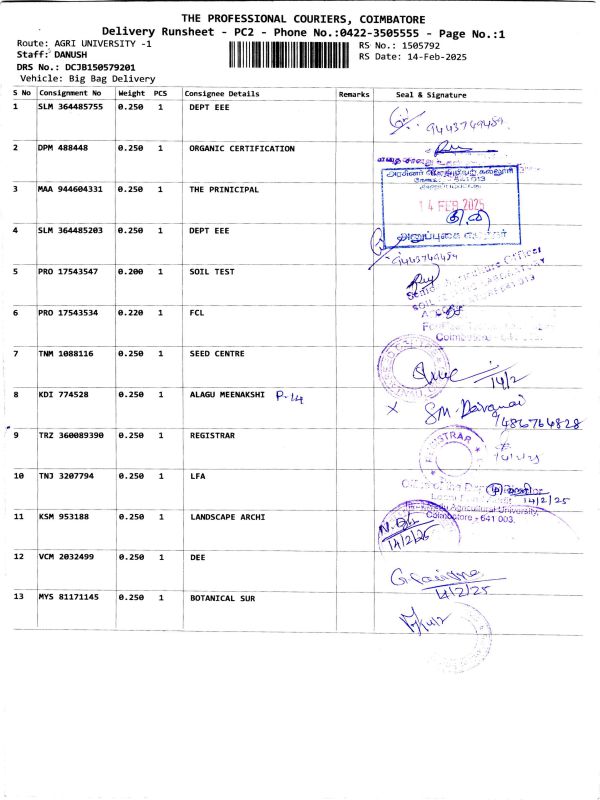 THE PROFESSIONAL COURIERS, COIMBATORE
Delivery Runsheet - PC2 - Phone No.:0422-3505555 - Page No.:1
Route: AGRI UNIVERSITY -1
RS No.: 1505792
Staff: DANUSH
RS Date: 14-Feb-2025
DRS No.: DCJB150579201
Vehicle: Big Bag Delivery
S No Consignment No Weight PCS Consignee Details Remarks Seal & Signature
1 SLM 364485755 0.250 1 DEPT EEE
9443749459
2 DPM 488448 0.250 1 ORGANIC CERTIFICATION
3 MAA 944604331 0.250 1 THE PRINICIPAL
14 FEB 2025
4 SLM 364485203 0.250 1 DEPT EEE
9443749459
5 PRO 17543547 0.200 1 SOIL TEST
6 PRO 17543534 0.220 1 FCL
7 TNM 1088116 0.250 1 SEED CENTRE
14/2
8 KDI 774528 0.250 1 ALAGU MEENAKSHI P-14
X SM.
9486764828
9 TRZ 360089390 0.250 1 REGISTRAR
REGISTRAR
14/2/25
10 TNJ 3207794 0.250 1 LFA
14/2/25
11 KSM 953188 0.250 1 LANDSCAPE ARCHI
Agricultural University,
Coimbatore - 641 003.
14/2/25
12 VCM 2032499 0.250 1 DEE
14/2/25
13 MYS 81171145 0.250 1 BOTANICAL SUR
14/2